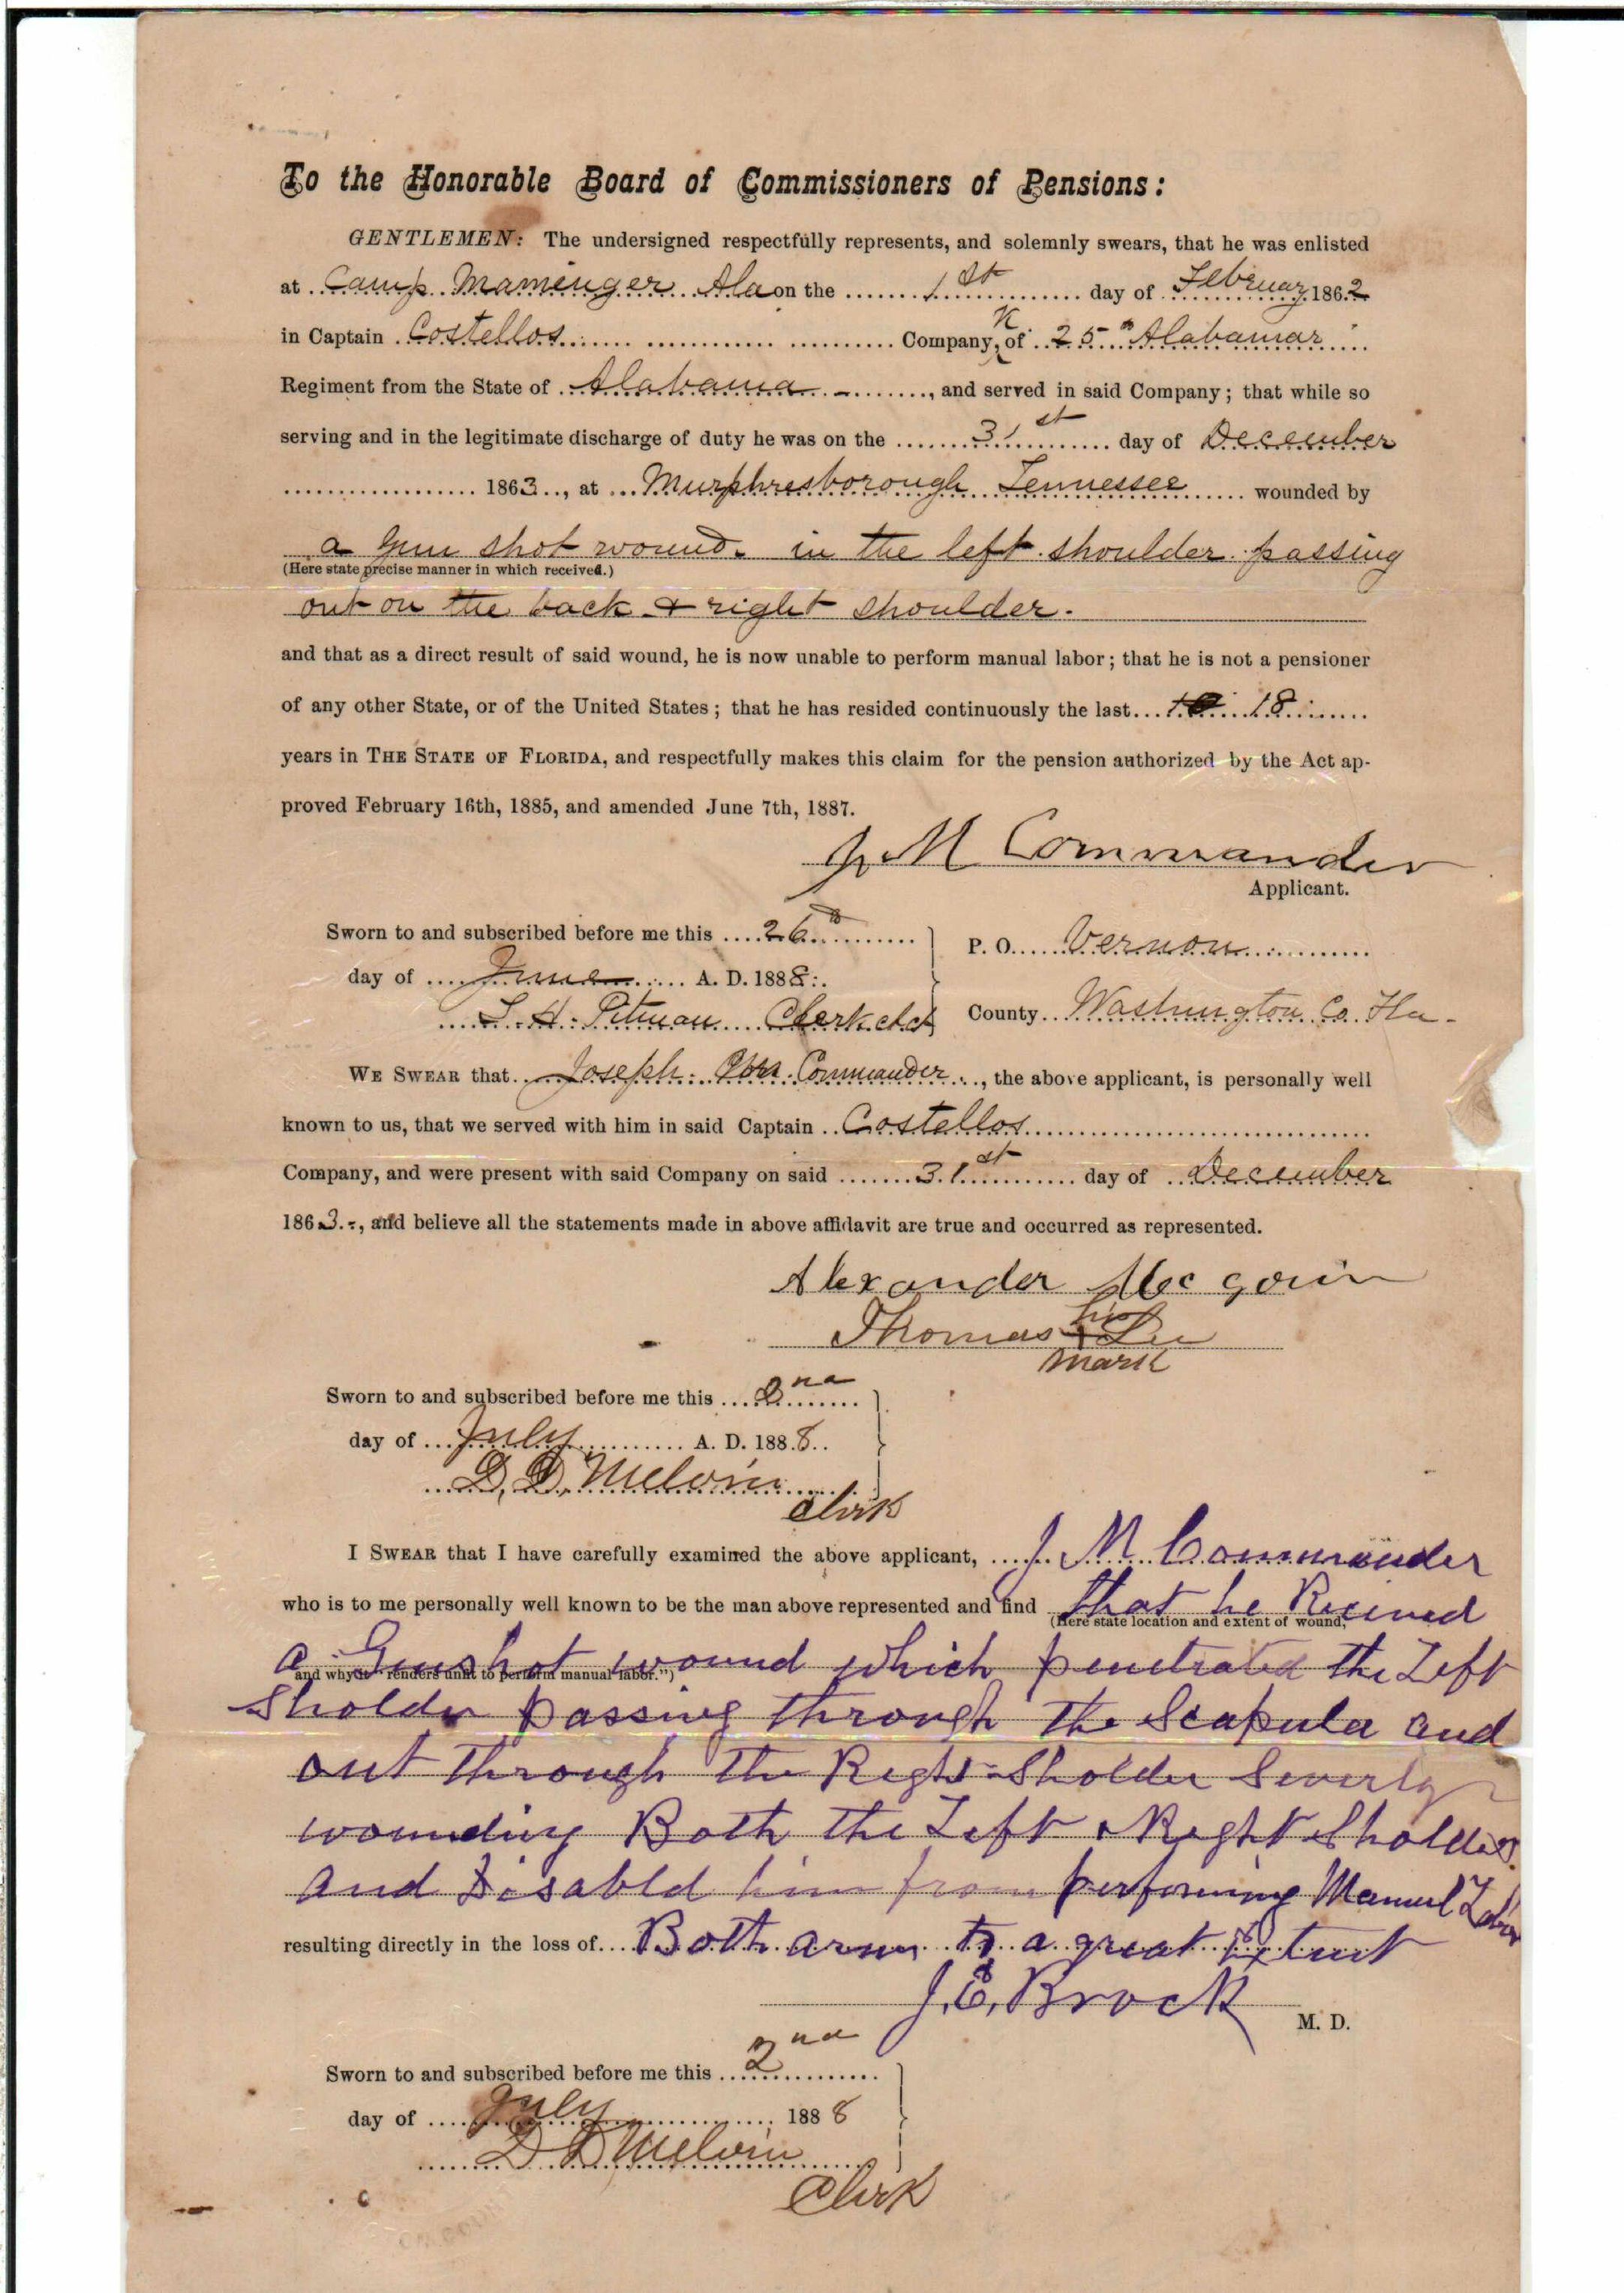 To the Honorable Board of Commissioners of Pensions:
GENTLEMEN: The undersigned respectfully represents, and solemnly swears, that he was enlisted
at Camp Mamenger Ala on the 1st day of February 1862
in Captain Costellos Company, K of 25th Alabamar
Regiment from the State of Alabama, and served in said Company; that while so
serving and in the legitimate discharge of duty he was on the 31st day of December
1863, at Murphresborough Tennessee wounded by
a gun shot wound in the left shoulder passing
(Here state precise manner in which received.)
out on the back & right shoulder.
and that as a direct result of said wound, he is now unable to perform manual labor; that he is not a pensioner
of any other State, or of the United States; that he has resided continuously the last 18
years in THE STATE OF FLORIDA, and respectfully makes this claim for the pension authorized by the Act ap-
proved February 16th, 1885, and amended June 7th, 1887.
J M Commander
Applicant.
Sworn to and subscribed before me this 26th
day of June A. D. 1888.
Pitman Clerk
P. O. Vernon
County Washington Co. Fla.
WE SWEAR that Joseph Commander, the above applicant, is personally well
known to us, that we served with him in said Captain Costellos
Company, and were present with said Company on said 31st day of December
1863, and believe all the statements made in above affidavit are true and occurred as represented.
Alexander Mc gowin
Thomas his + Lee
mark
Sworn to and subscribed before me this 2nd
day of July A. D. 1888
D. D. Melvin
Clerk
I SWEAR that I have carefully examined the above applicant, J. M. Commander
who is to me personally well known to be the man above represented and find that he Received
(Here state location and extent of wound,
a Gunshot wound which penetrated the Left
and why it "renders unfit to perform manual labor.")
Sholder passing through the Scapula and
out through the Right Sholder Severly
wounding Both the Left & Right Sholders
and Disabld him from performing Manuel Labor
resulting directly in the loss of Both arms to a great Extent
J. E. Brock
M. D.
Sworn to and subscribed before me this 2nd
day of July 1888
D D Melvin
Clerk